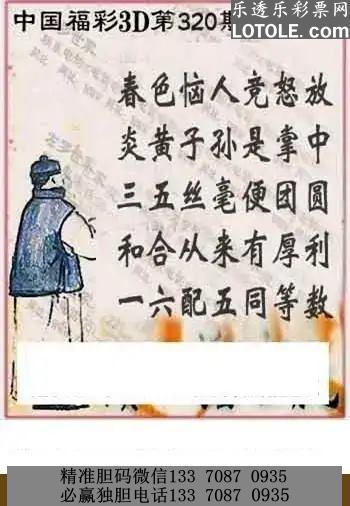 乐透乐彩票网
中国福彩3D第320期
WWW.
LOTOLE.COM
春色恼人竞怒放
炎黄子孙是掌中
三五丝毫便团圆
和合从来有厚利
一六配五同等数
精准胆码微信133 7087 0935
必赢独胆电话133 7087 0935